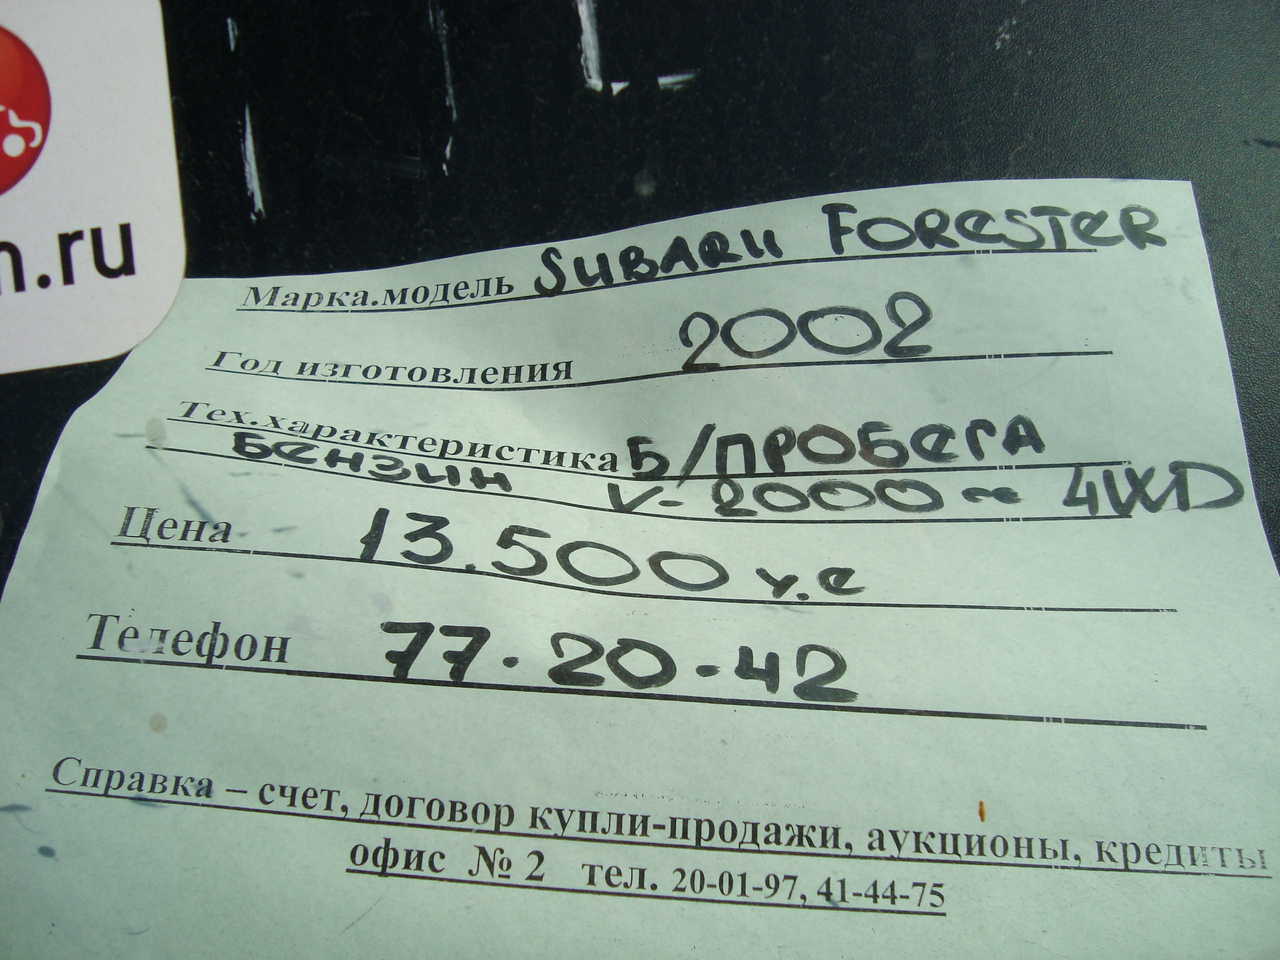 m.ru
Марка.модель SUBARU FORESTER
Год изготовления 2002
Тех.характеристика Б/ПРОБЕГА
БЕНЗИН V-2000~ 4WD
Цена 13.500 у.е
Телефон 77-20-42
Справка – счет, договор купли-продажи, аукционы, кредиты
офис № 2 тел. 20-01-97, 41-44-75